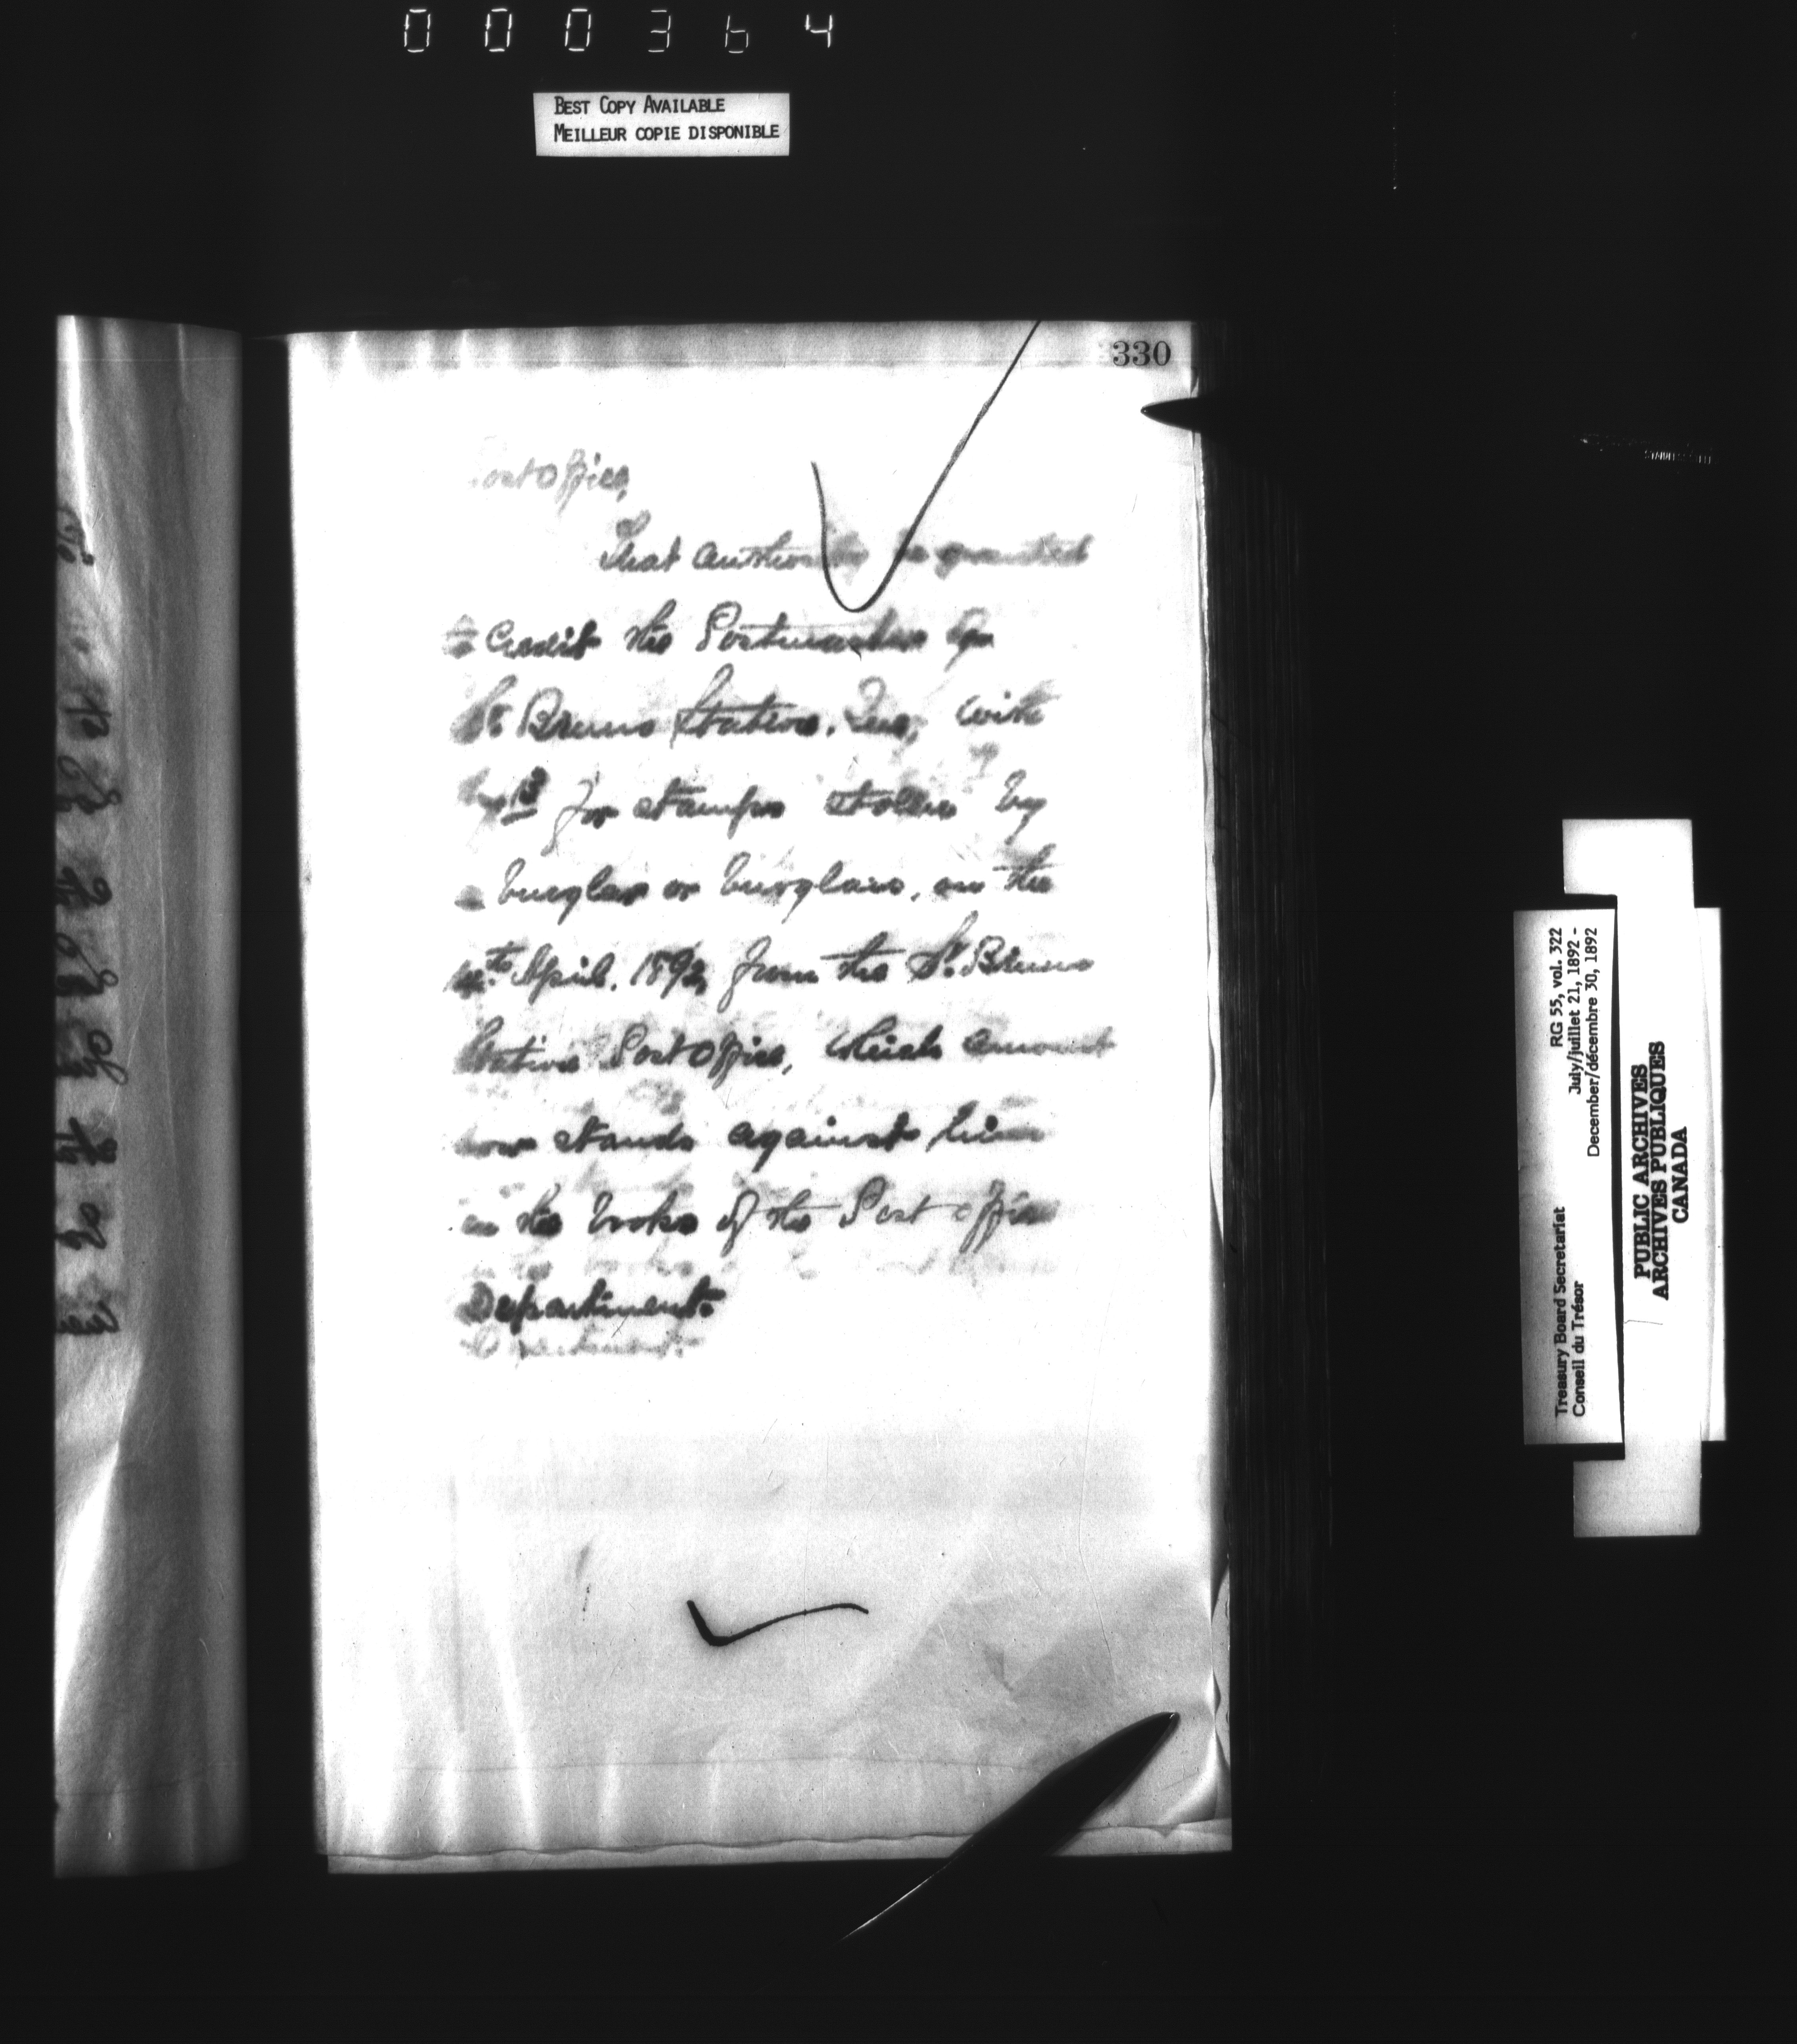 000364
BEST COPY AVAILABLE
MEILLEUR COPIE DISPONIBLE
330
Post Office,
That authority be granted
to Credit the Postmaster of
St Bruno Station, Que, with
for stamps stollen by
a burglar or burglars, on the
April, 1892, from the St. Bruno
Station Post Office, which amount
now stands against him
in the books of the Post office
Department.
Treasury Board Secretariat RG 55, vol. 322
Conseil du Trésor July/juillet 21, 1892 -
December/décembre 30, 1892
PUBLIC ARCHIVES
ARCHIVES PUBLIQUES
CANADA